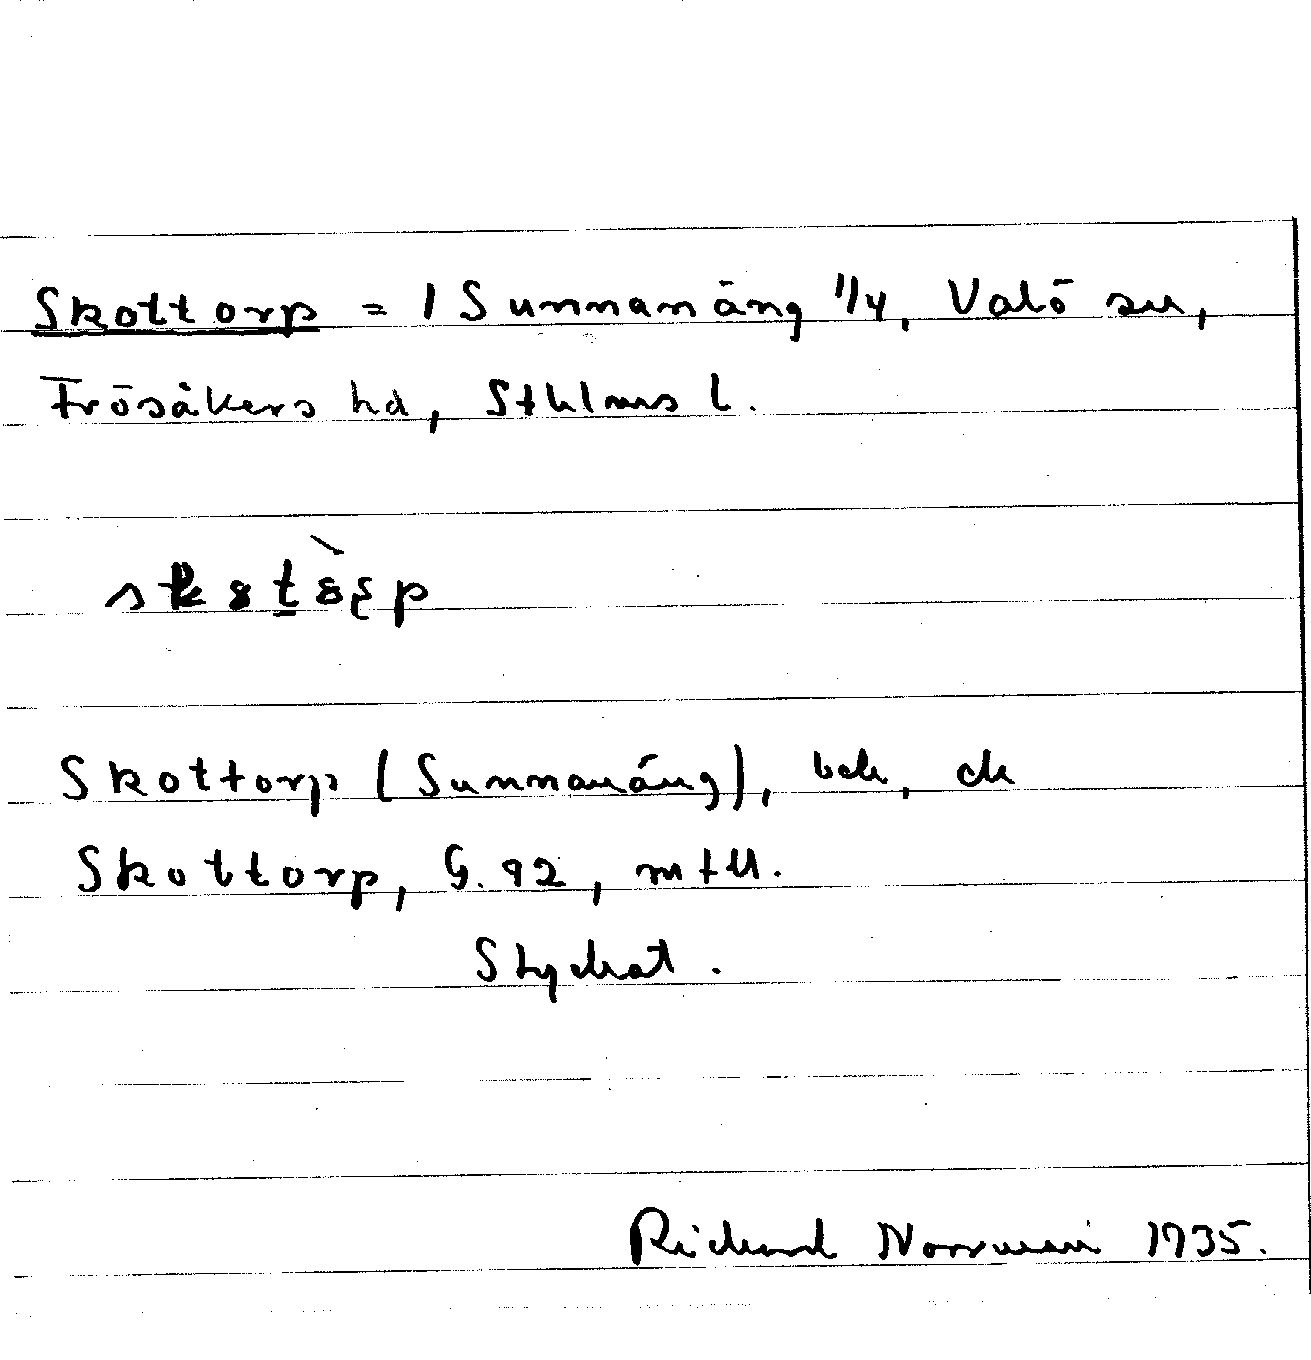 Skottorp = / Sunnanäng 1/4, Valö sn,
Frösåkers hd, Sthlms l.
Skottorp (Sunnanäng), beb, ek
Skottorp, G. 92, mtll.
Styckat.
Richard Norrman 1935.